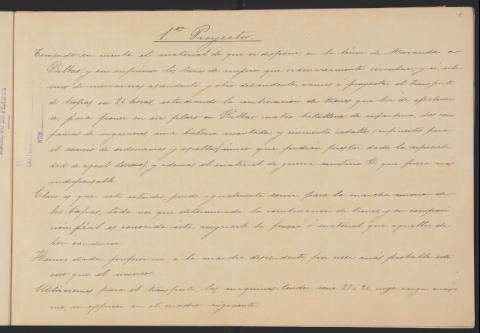 1er Proyecto
Teniendo en cuenta el material de que se dispone en la línea de Miranda a
Bilbao, y sin suprimir los trenes de viajeros que ordinariamente circulan, y si
uno de mercancías ascendente y otro descendente, vamos a proyectar el transporte
de tropas en 24 horas, estudiando la combinación de trenes que ha de efectuar
se, para poner en ese plazo en Bilbao, cuatro batallones de infantería, dos com
pañías de ingenieros, una batería montada, y cincuenta caballos, para
el servicio de ordenanzas y escoltas,
y además el material de guerra, sanitario &, que fuera más
indispensable.
Claro es que este estudio puede igualmente servir para la marcha inversa de
las tropas, toda vez que determinada la combinación de trenes y su composi
ción fácil es conocida esta, asignarle la fuerza o material que aquellos de
ben conducir.
Hemos dado preferencia a la marcha descendente, por ser más probable este
caso que el inverso.
Utilizaremos para el transporte, las máquinas tender serie 21 a 26, cuya carga máxi
ma, se expresa en el cuadro siguiente.